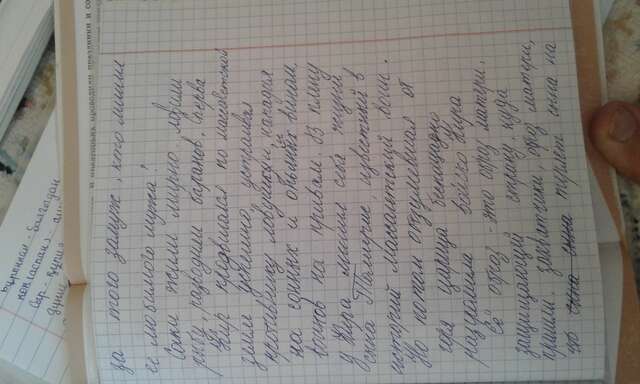 Буркпан - болгодан
и пекторынь проводили праздники и со
за того замуж, кто лишил
её любимого мужа?
Саки жили мирно ловили
рыбу, разводили баранов. Сперва
Кир продвигался по массагетской
земле успешно, устраивая
противнику ловушкуи, нападая
на сонных и опьяных вином,
воинов на привам. В плену
у Кира лишил себя жизни
сына Томирис, известный в
историй массагетский воин.
Но потом обезумевшая от
горя царица беспощадно
разгромила войско Кира
Её образ - это образ матери,
защищающий страну, куда
пришли захватчики, образ матери,
что сына сына теряет сына на